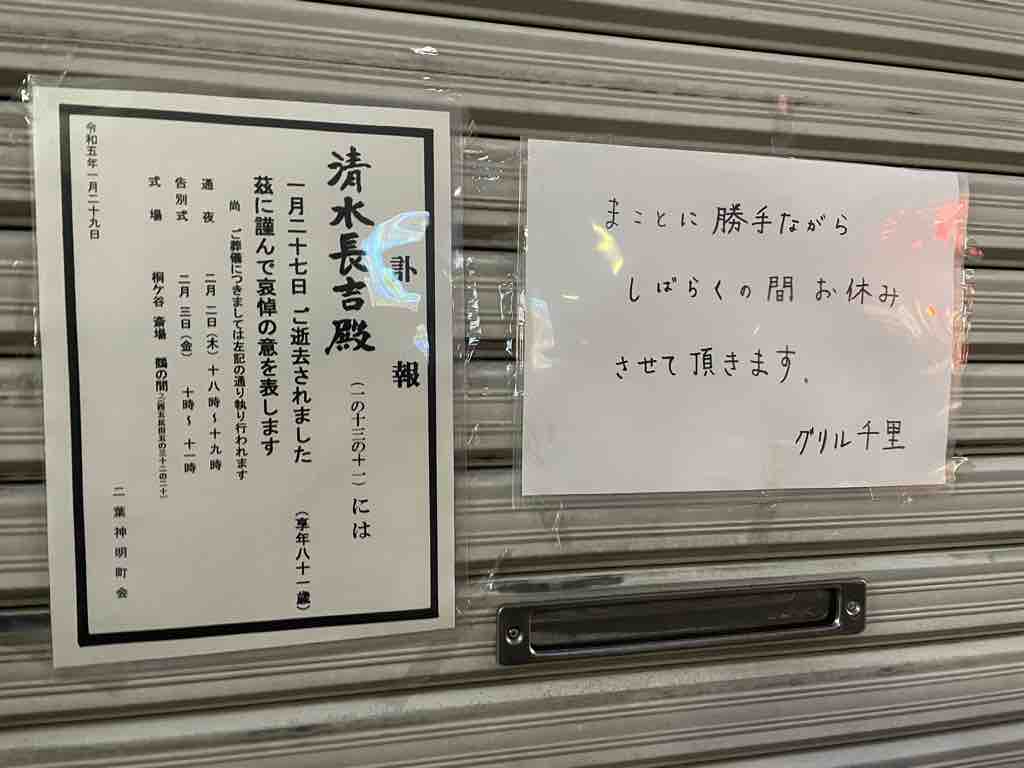 訃報
清水長吉殿(二の十三の十一)には
一月二十七日 ご逝去されました(享年八十一歳)
茲に謹んで哀悼の意を表します
尚 ご葬儀につきましては左記の通り執り行われます
通夜 二月 二日(木) 十八時〜十九時
告別式 二月 三日(金) 十時〜十一時
式場 桐ケ谷 斎場 鶴の間
令和五年一月二十九日
二葉神明町会
まことに勝手ながら
しばらくの間 お休み
させて頂きます。
グリル千里